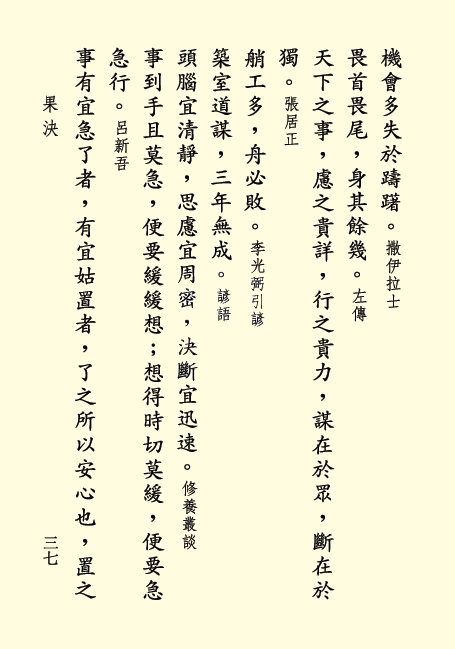 機會多失於躊躇。撒伊拉士
畏首畏尾，身其餘幾。左傳
天下之事，慮之貴詳，行之貴力，謀在於眾，斷在於
獨。張居正
艄工多，舟必敗。李光弼引諺
築室道謀，三年無成。諺語
頭腦宜清靜，思慮宜周密，決斷宜迅速。修養叢談
事到手且莫急，便要緩緩想；想得時切莫緩，便要急
急行。呂新吾
事有宜急了者，有宜姑置者，了之所以安心也，置之
果決
三七